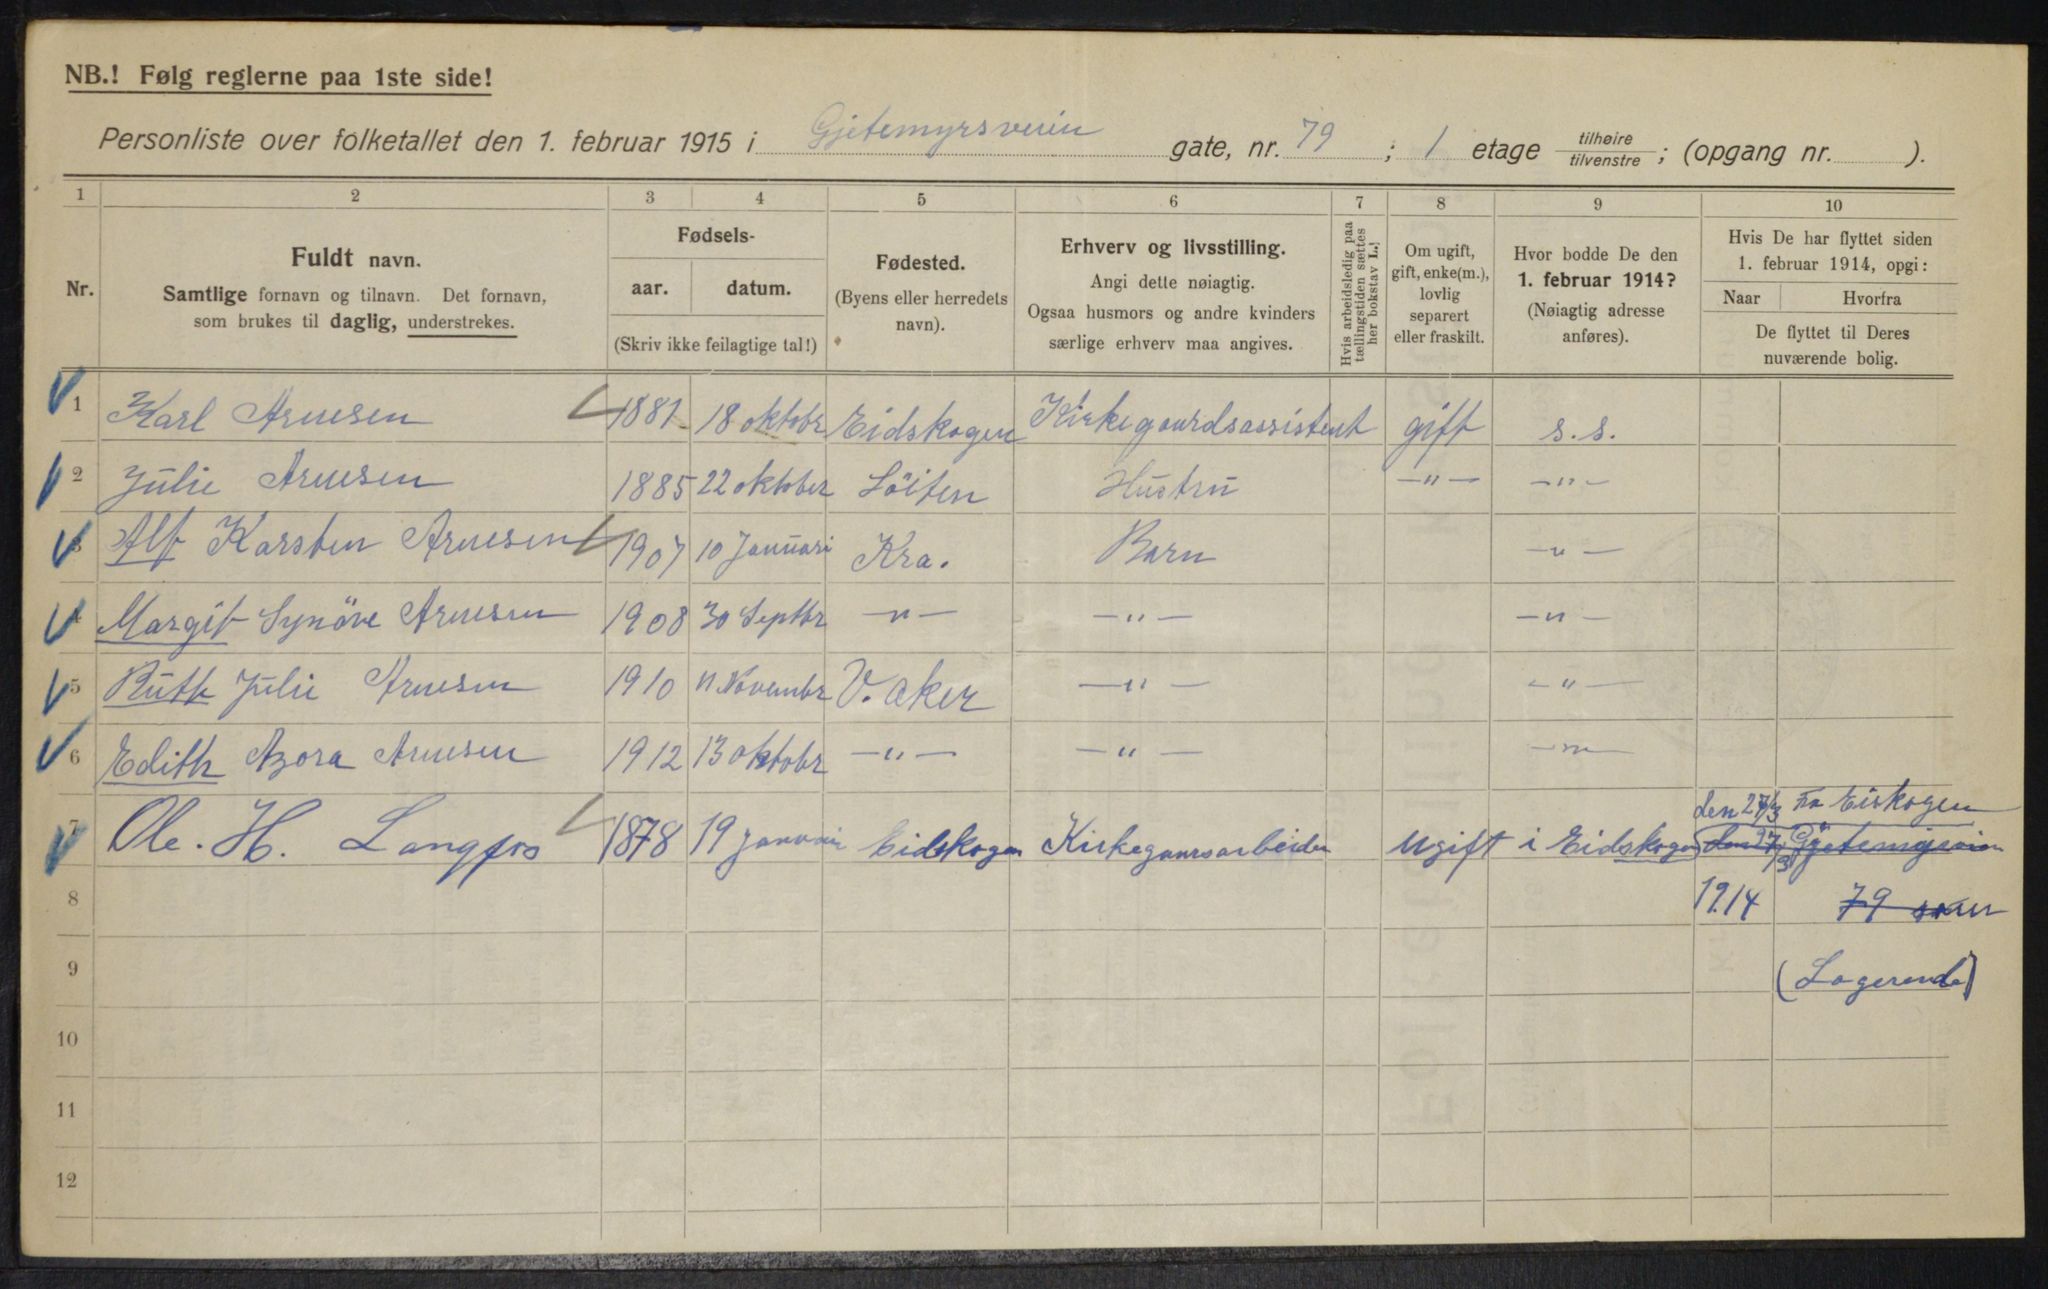 NB.! Følg reglerne paa 1ste side!
Personliste over folketallet den 1. februar 1915 i Gjetemyrsveiin gate, nr. 79 ; 1 etage tilhøire / tilvenstre ; (opgang nr. ).
1 2 3 4 5 6 7 8 9 10
Nr.
Fuldt navn.
Samtlige fornavn og tilnavn. Det fornavn,
som brukes til daglig, understrekes.
Fødsels-
aar. datum.
(Skriv ikke feilagtige tal!)
Fødested.
(Byens eller herredets
navn).
Erhverv og livsstilling.
Angi dette nøiagtig.
Ogsaa husmors og andre kvinders
særlige erhverv maa angives.
Hvis arbeidsledig paa
tællingstiden sættes
her bokstav L.!
Om ugift,
gift, enke(m.),
lovlig
separert
eller fraskilt.
Hvor bodde De den
1. februar 1914?
(Nøiagtig adresse
anføres).
Hvis De har flyttet siden
1. februar 1914, opgi:
Naar Hvorfra
De flyttet til Deres
nuværende bolig.
1 Karl Arnesen 1881 18 oktobr Eidskogen Kirkegaardsassistent gift s.s.
2 Julie Arnesen 1885 22 oktober Löiten Hustru —"— —"—
3 Alf Karsten Arnesen 1907 10 Januari Kra. Barn —"—
4 Margit Synöve Arnesen 1908 30 Septbr —"— —"— —"—
5 Ruth Julie Arnesen 1910 11 Novembr V. aker —"— —"—
6 Edith Azora Arnesen 1912 13 oktobr —"— —"— —"—
den 27/3 Fra Eiskogen
7 Ole. H. Langfos 1878 19 Januari Eidskogen Kirkegaursarbeider Ugift i Eidskogen den 27/3 Gjetemigsveien
8 1914 79
9 (Logerende)
10
11
12